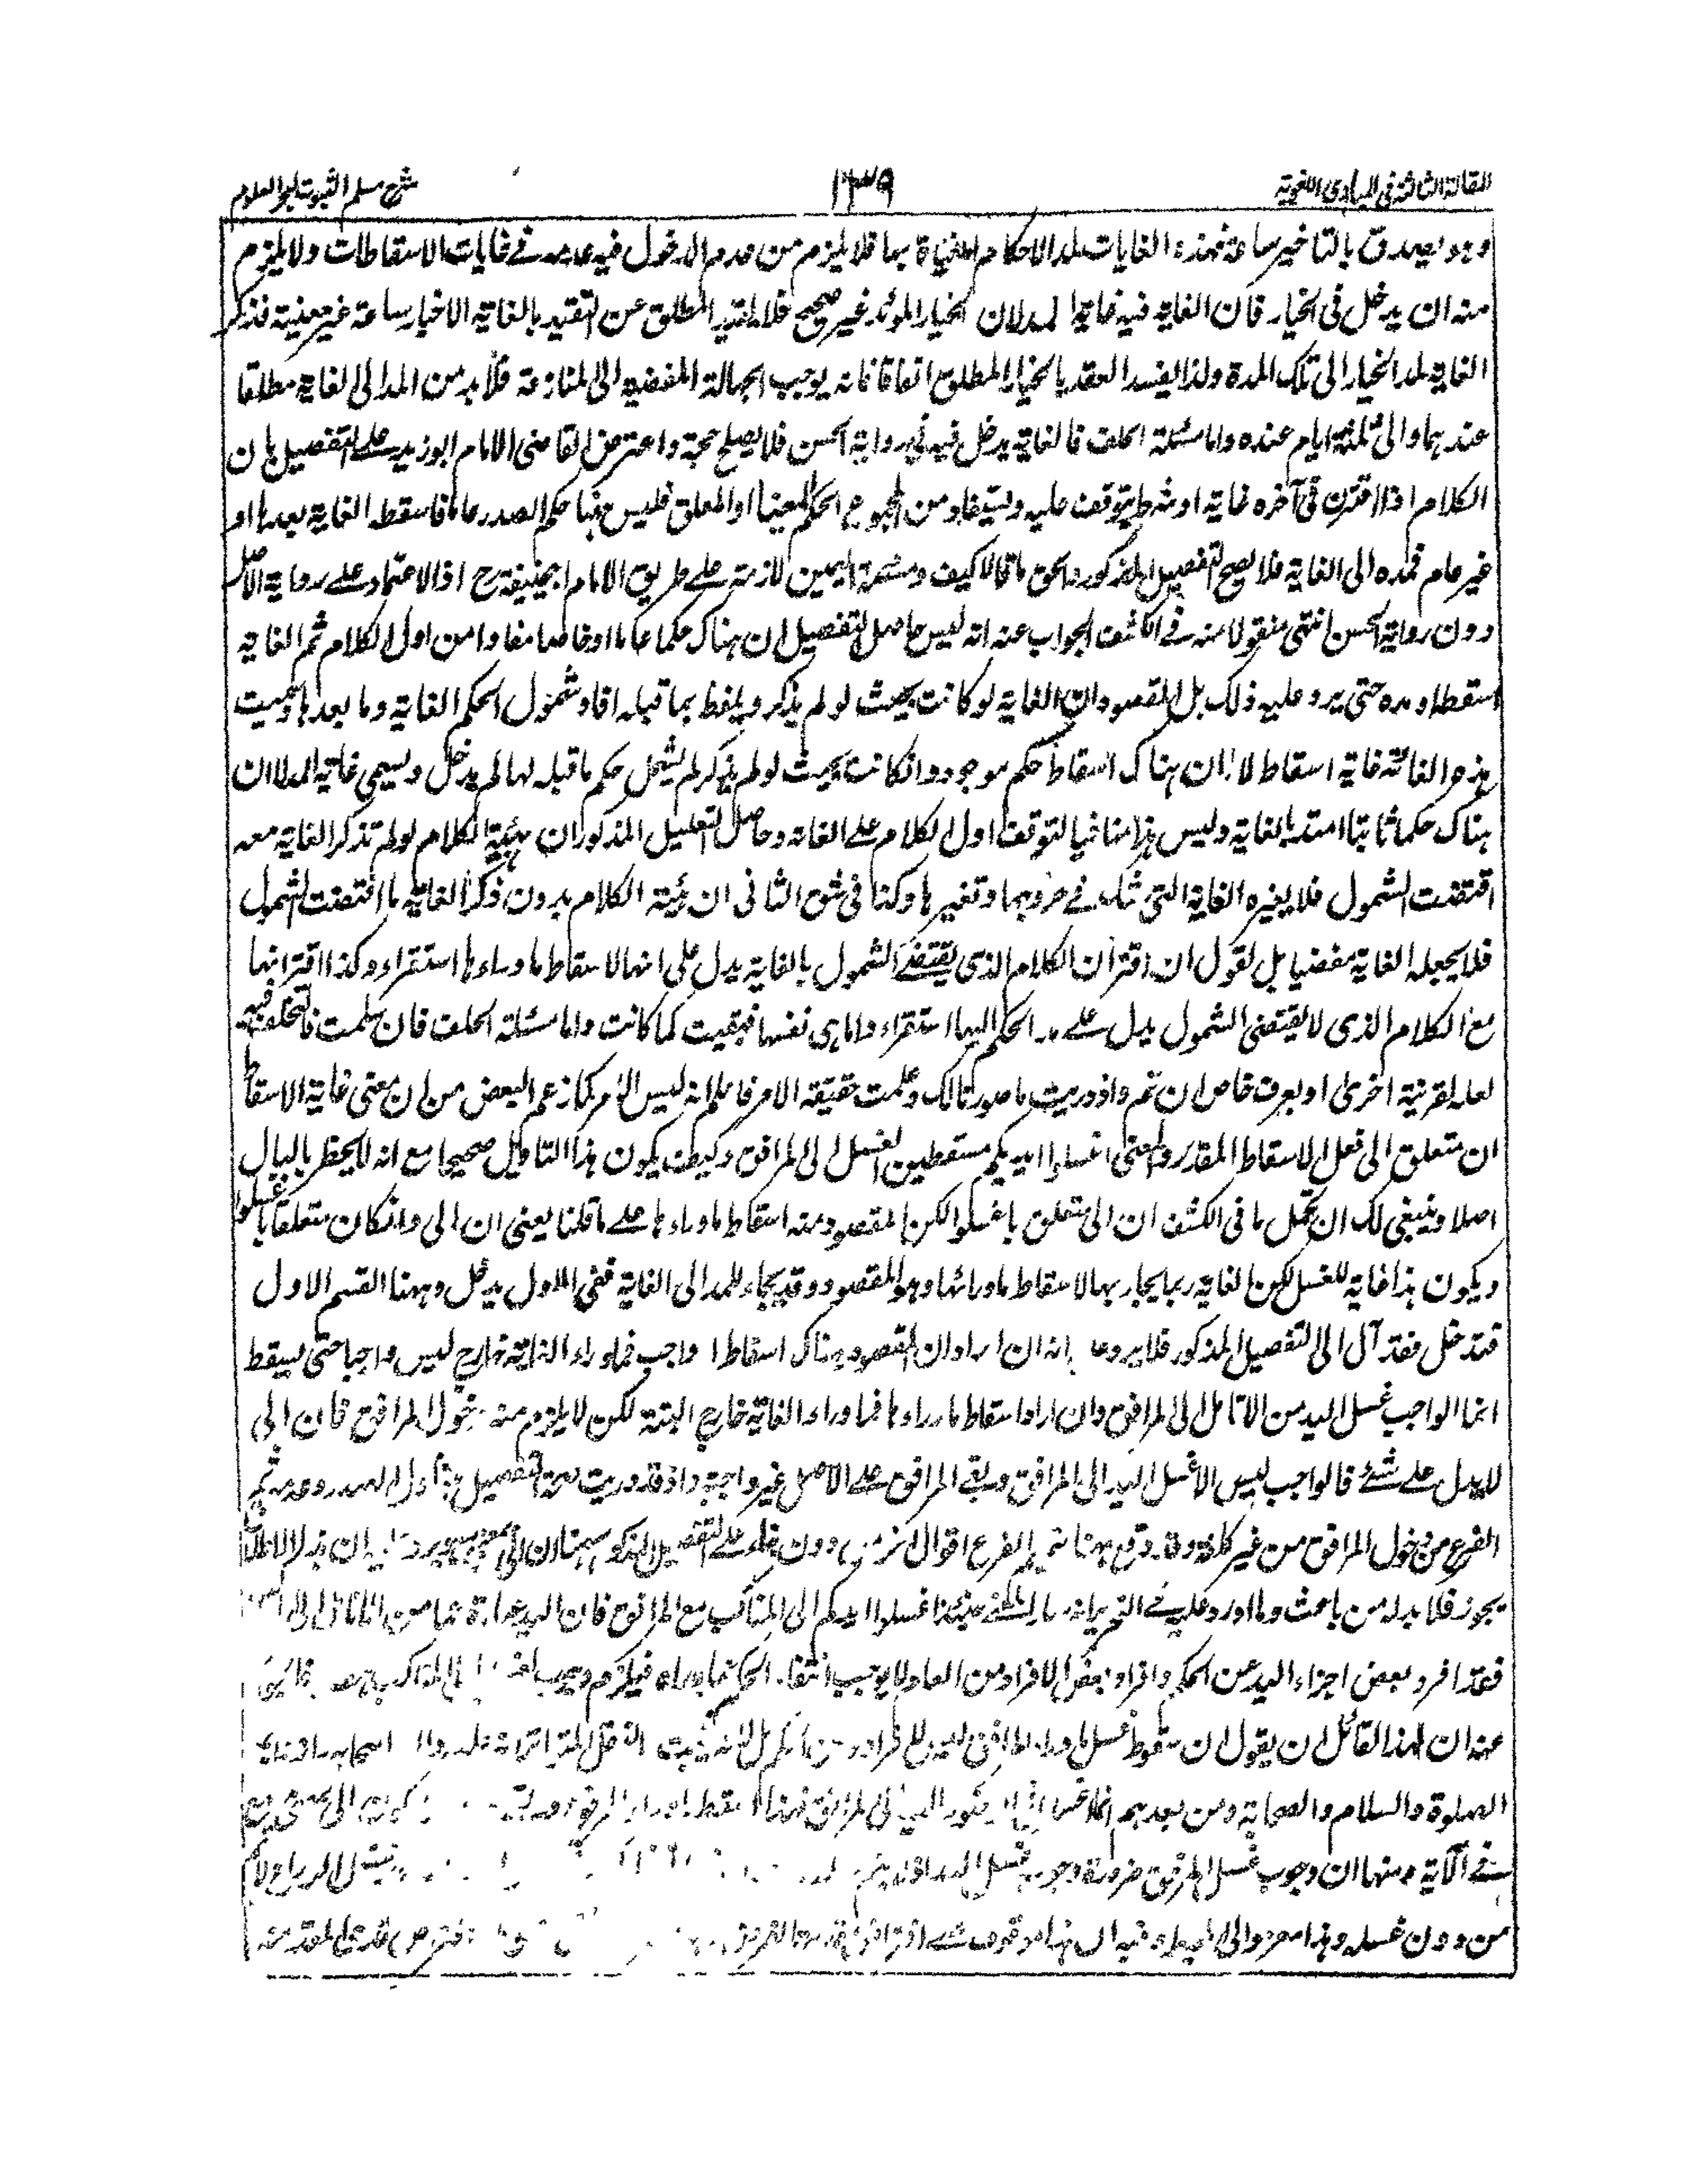 المقالة الثالثة في المبادي اللغوية ١٣٩ شرح مسلم الثبوت لبحر العلوم
وهو يصدق بالتاخير ساعة فهذه الغايات لمد الاحكام المغياة بها فلا يلزم من عدم الدخول فيه عدمه في غايات الاسقاطات ولا يلزم
منه ان يدخل في الخيار فان الغاية فيه غاية المد لان الخيار الموبد غير صحيح فلا يقدر المطلق عن التقييد بالغاية الا خيار ساعة غير معينة فذكر
الغاية لمد الخيار الى تلك المدة ولذا يفسد العقد بالخيار المطلق اتفاقا فانه يوجب الجهالة المفضية الى المنازعة فلا بد من المد الى الغاية مطلقا
عندهما والى ثلثة ايام عنده واما مسئلة الحلف فالغاية يدخل فيه في رواية الحسن فلا يصلح حجة واعترض القاضى الامام ابو زيد على التفصيل بان
الكلام اذا اقترن في آخره غاية او شرط يتوقف عليه ويستفاد من المجموع الحكم المغيا او المعلق فليس هنا حكم الصدر عاما فاسقطه الغاية بعدها او
غير عام فمده الى الغاية فلا يصح التفصيل المذكور والحق ما قالا كيف ومسئلة اليمين لازمة على طريق الامام ابيحنيفة رح اذ الاعتماد على رواية الاصل
دون رواية الحسن انتهى منقولا منه في الكشف الجواب عنه انه ليس حاصل التفصيل ان هناك حكما عاما او خاصا مفادا من اول الكلام ثم الغاية
اسقطه او مده حتى يرد عليه ذلك بل المقصود ان الغاية لو كانت بحيث لو لم يذكر ويلفظ بما قبله افاد شمول الحكم الغاية وما بعدها سميت
هذه الغاية غاية اسقاط لا ان هناك اسقاط حكم موجود وانكانت بحيث لو لم يذكر لم يشمل حكم ما قبله لها لم يدخل ويسمى غاية المد لا ان
هناك حكما ثابتا امتد بالغاية وليس هذا منافيا لتوقف اول الكلام على الغاية وحاصل التعليل المذكور ان هيئة الكلام لو لم تذكر الغاية معه
اقتضت الشمول فلا يغيره الغاية التي شك في خروجها وتغيرها وكذا في شق الثانى ان هيئة الكلام بدون ذكر الغاية ما اقتضت الشمول
فلا يجعله الغاية مفضيا بل نقول ان اقتران الكلام الذى يقتضى الشمول بالغاية يدل على انها لاسقاط ما وراءها استقراء وكذا اقترانها
مع الكلام الذى لا يقتضى الشمول يدل على مد الحكم اليها استقراء واما هى نفسها فبقيت كما كانت واما مسئلة الحلف فان سلمت فالتخلف فيه
لعله لقرينة اخرى او بعرف خاص ان تم واذ دريت ما صورنا لك وعلمت حقيقة الامر فاعلم انه ليس الامر كما زعم البعض من ان معنى غاية الاسقاط
ان متعلق الى فعل الاسقاط المقدر والمعنى اغسلوا ايديكم مسقطين الغسل الى المرافق وكيف يكون هذا التاويل صحيحا مع انه لا يخطر بالبال
اصلا وينبغى لك ان تحمل ما في الكشف ان الى متعلق باغسلوا لكن المقصود منه اسقاط ما وراءها على ما قلنا يعنى ان الى وانكان متعلقا باغسلوا
ويكون هذا غاية للغسل لكن الغاية ربما يجاء بها لاسقاط ما ورائها وهو المقصود وقد يجاء للمد الى الغاية ففى الاول يدخل وههنا القسم الاول
فتدخل فقد آل الى التفصيل المذكور فلا يرد ما انه ان اراد ان المقصود هناك اسقاط الواجب فما وراء الغاية خارج ليس واجبا حتى يسقط
انما الواجب غسل اليد من الانامل الى المرافق وان اراد اسقاط ما وراءها فما وراء الغاية خارج البتة لكن لا يلزم منه دخول المرافق فان الى
لا يدل على شئ فالواجب ليس الا غسل اليد الى المرافق وبقى المرافق على الاصل غير واجبة واذ قد دريت التفصيل اول الصدر وعدمه ثم
الفرع من دخول المرافق من غير كلفة وقد وقع ههنا الفرع اقوال اخر دون بناء على التفصيل المذكور منها ان الى بمعنى مع ويرد عليه ان هذا الاطلاق
يجوز فلا بد له من باعث وما اورد عليه في التحرير انه حينئذ اغسلوا ايديكم الى المناكب مع المرافق فان اليد عبارة عنها من الانامل الى
فقد افرد بعض اجزاء اليد عن الحكم وافراد بعض الافراد من العام لا يوجب انتفاء الحكم عما وراءه فيلزم وجوب
عنه ان لهذا القائل ان يقول ان سقوط غسل ما وراء المرافق ليس للافراد بل لانه ثبت النقل المتواتر
الصلوة والسلام والصحابة ومن بعدهم انما الى المرافق
في الآية ومنها ان وجوب غسل المرفق ضرورة وجوب غسل اليد
من دون غسله وهذا معزو الى وفيه ان هذا موقوف